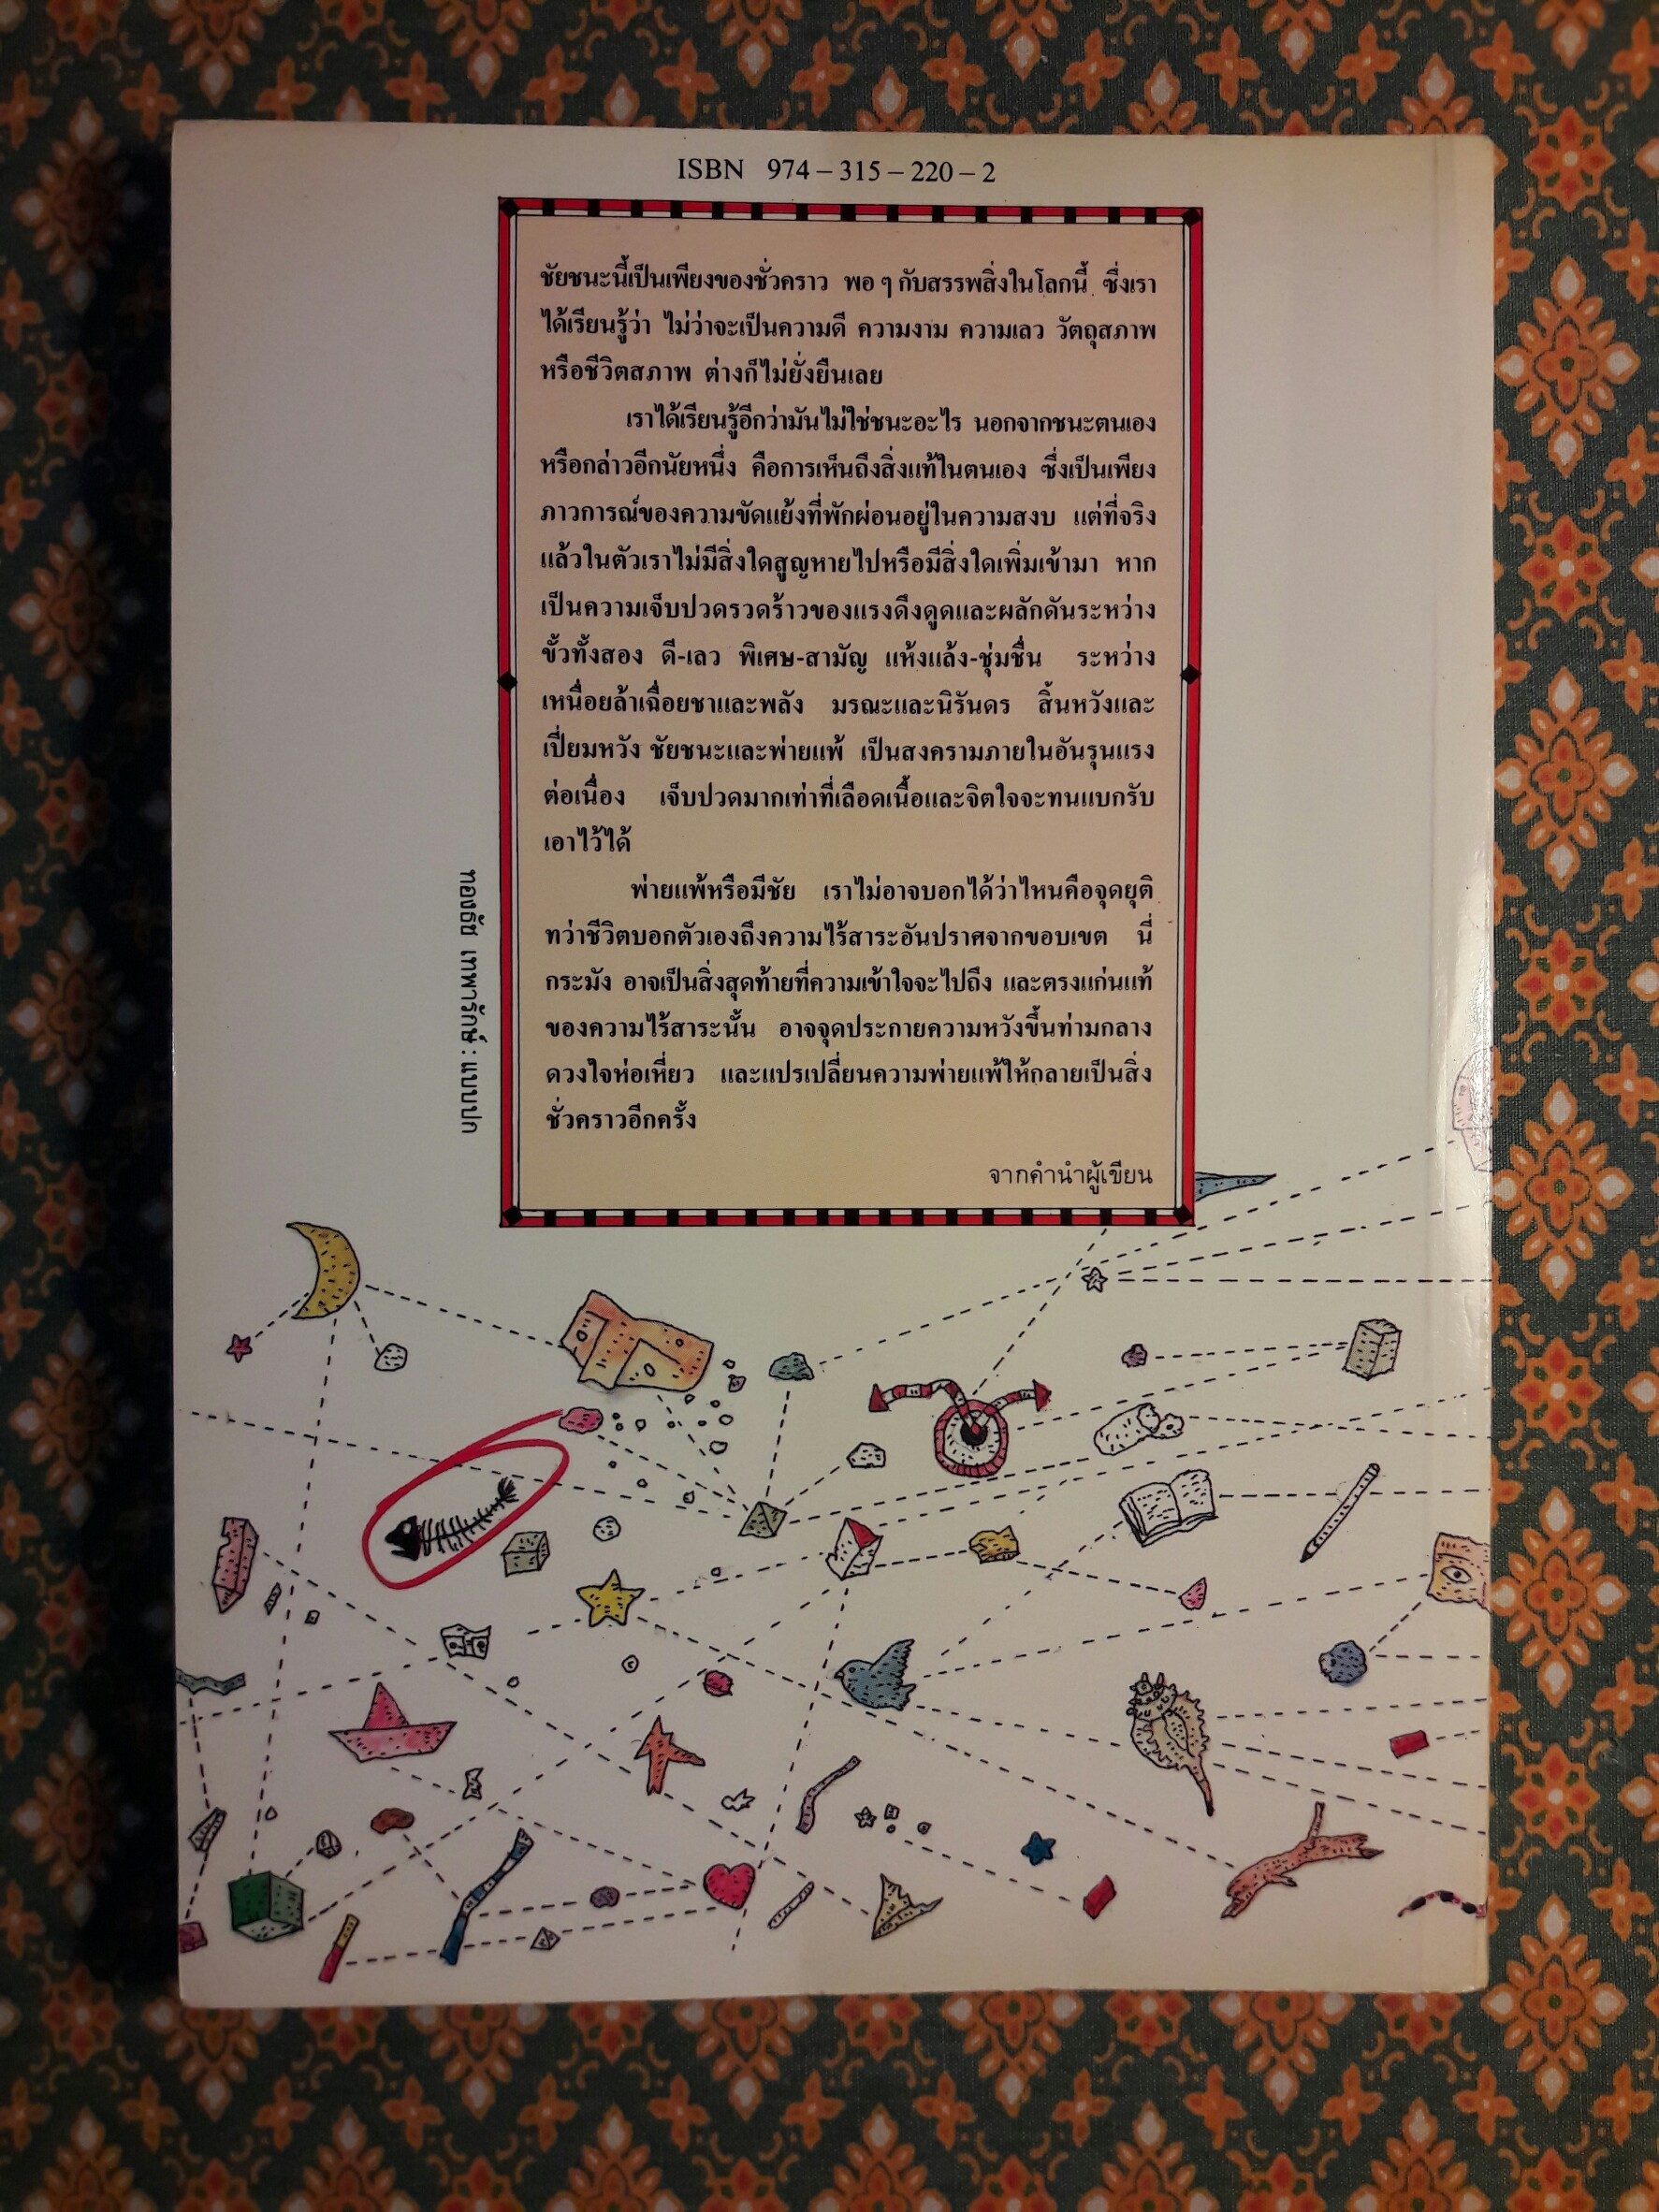 ISBN 974–315–220–2
ชัยชนะนี้เป็นเพียงของชั่วคราว พอ ๆ กับสรรพสิ่งในโลกนี้ ซึ่งเรา
ได้เรียนรู้ว่า ไม่ว่าจะเป็นความดี ความงาม ความเลว วัตถุสภาพ
หรือชีวิตสภาพ ต่างก็ไม่ยั่งยืนเลย
เราได้เรียนรู้อีกว่ามันไม่ใช่ชนะอะไร นอกจากชนะตนเอง
หรือกล่าวอีกนัยหนึ่ง คือการเห็นถึงสิ่งแท้ในตนเอง ซึ่งเป็นเพียง
ภาวการณ์ของความขัดแย้งที่พักผ่อนอยู่ในความสงบ แต่ที่จริง
แล้วในตัวเราไม่มีสิ่งใดสูญหายไปหรือมีสิ่งใดเพิ่มเข้ามา หาก
เป็นความเจ็บปวดรวดร้าวของแรงดึงดูดและผลักดันระหว่าง
ขั้วทั้งสอง ดี-เลว พิเศษ-สามัญ แห้งแล้ง-ชุ่มชื่น ระหว่าง
เหนื่อยล้าเฉื่อยชาและพลัง มรณะและนิรันดร สิ้นหวังและ
เปี่ยมหวัง ชัยชนะและพ่ายแพ้ เป็นสงครามภายในอันรุนแรง
ต่อเนื่อง เจ็บปวดมากเท่าที่เลือดเนื้อและจิตใจจะทนแบกรับ
เอาไว้ได้
พ่ายแพ้หรือมีชัย เราไม่อาจบอกได้ว่าไหนคือจุดยุติ
ทว่าชีวิตบอกตัวเองถึงความไร้สาระอันปราศจากขอบเขต นี่
กระมัง อาจเป็นสิ่งสุดท้ายที่ความเข้าใจจะไปถึง และตรงแก่นแท้
ของความไร้สาระนั้น อาจจุดประกายความหวังขึ้นท่ามกลาง
ดวงใจห่อเหี่ยว และแปรเปลี่ยนความพ่ายแพ้ให้กลายเป็นสิ่ง
ชั่วคราวอีกครั้ง
จากคำนำผู้เขียน
ทองธัช เทพารักษ์ : แบบปก